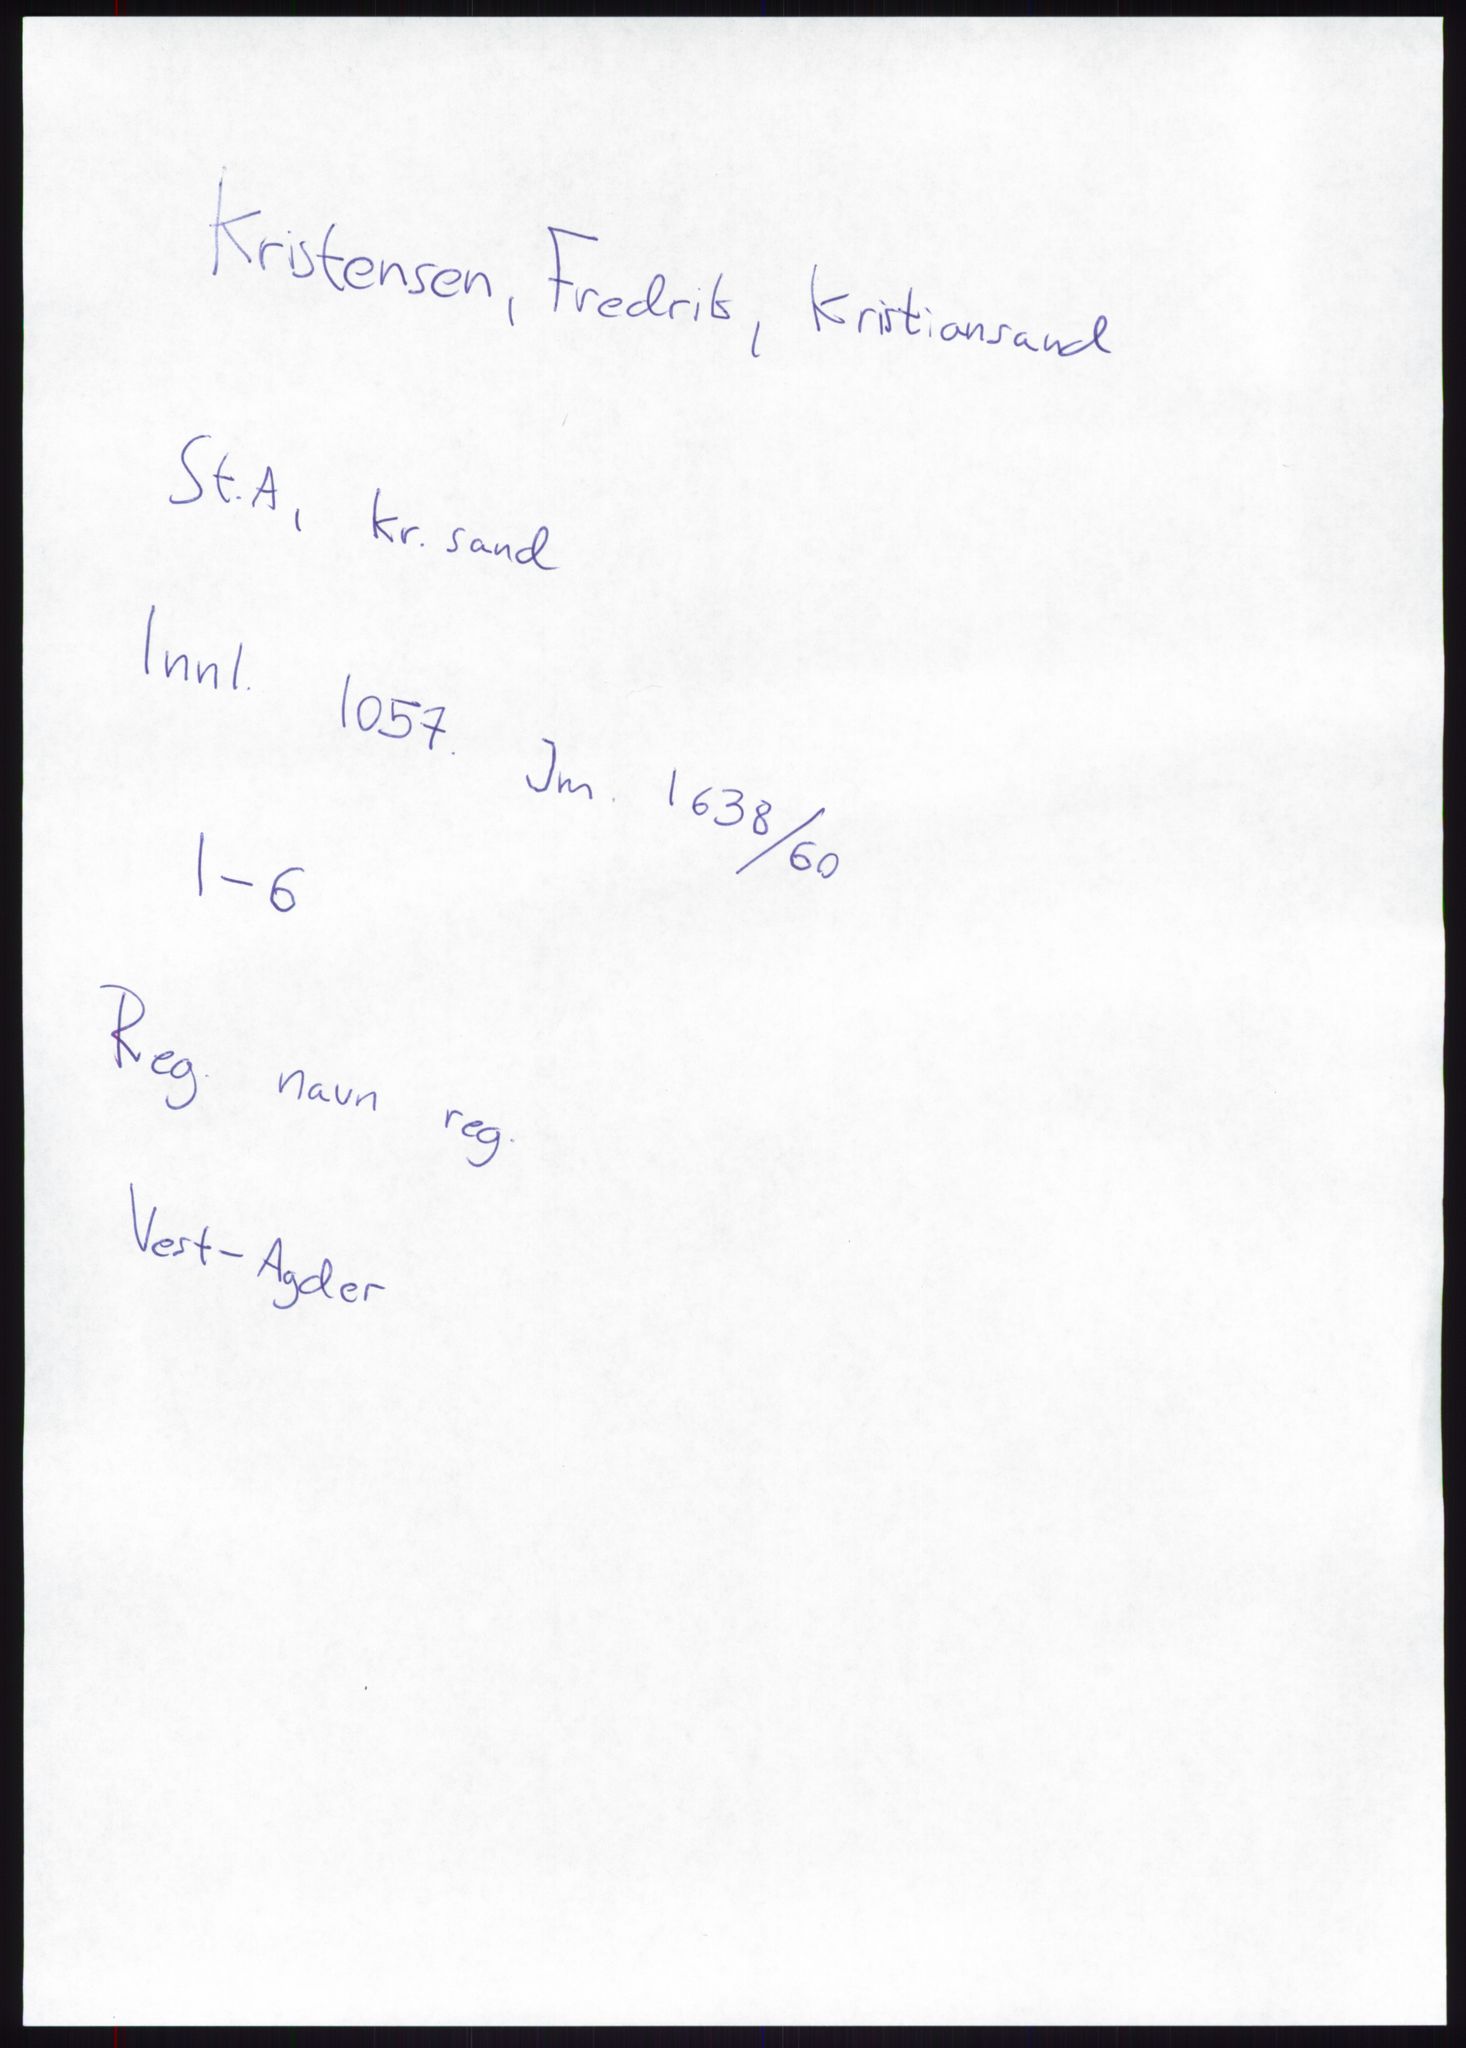 Kristensen, Fredrik, Kristiansand
St.A, Kr.sand
Innl. 1057. Jm. 1638/60
1-6
Reg. navn reg.
Vest-Agder